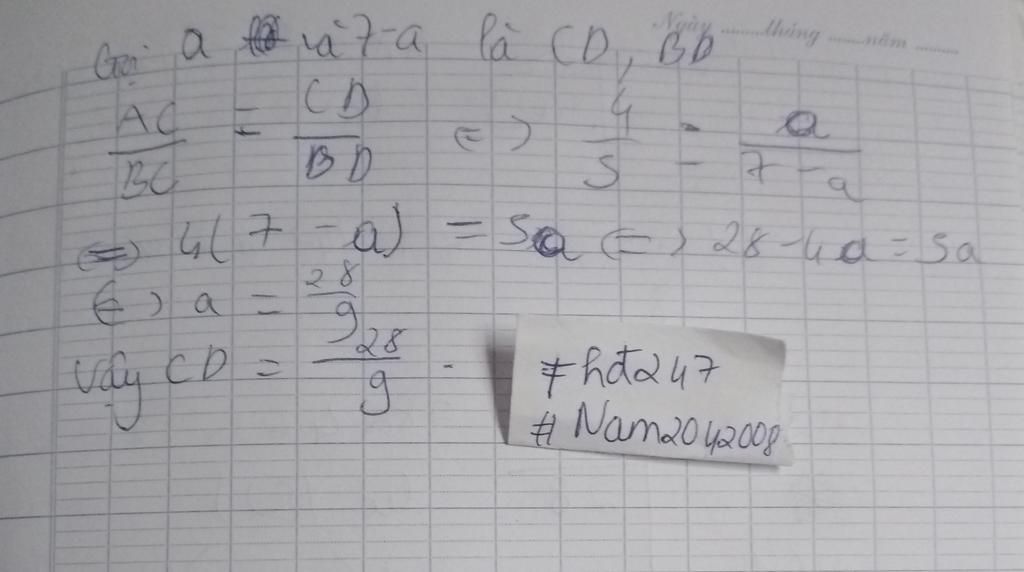 Ngày ........tháng ......năm ........
Gọi a và 7-a là CD, BD
AC/BC = CD/BD <=> 4/5 = a/7-a
<=> 4(7-a) = 5a <=> 28-4a=5a
<=> a = 28/9
Vậy CD = 28/9.
#hđ247
#Nam2042008